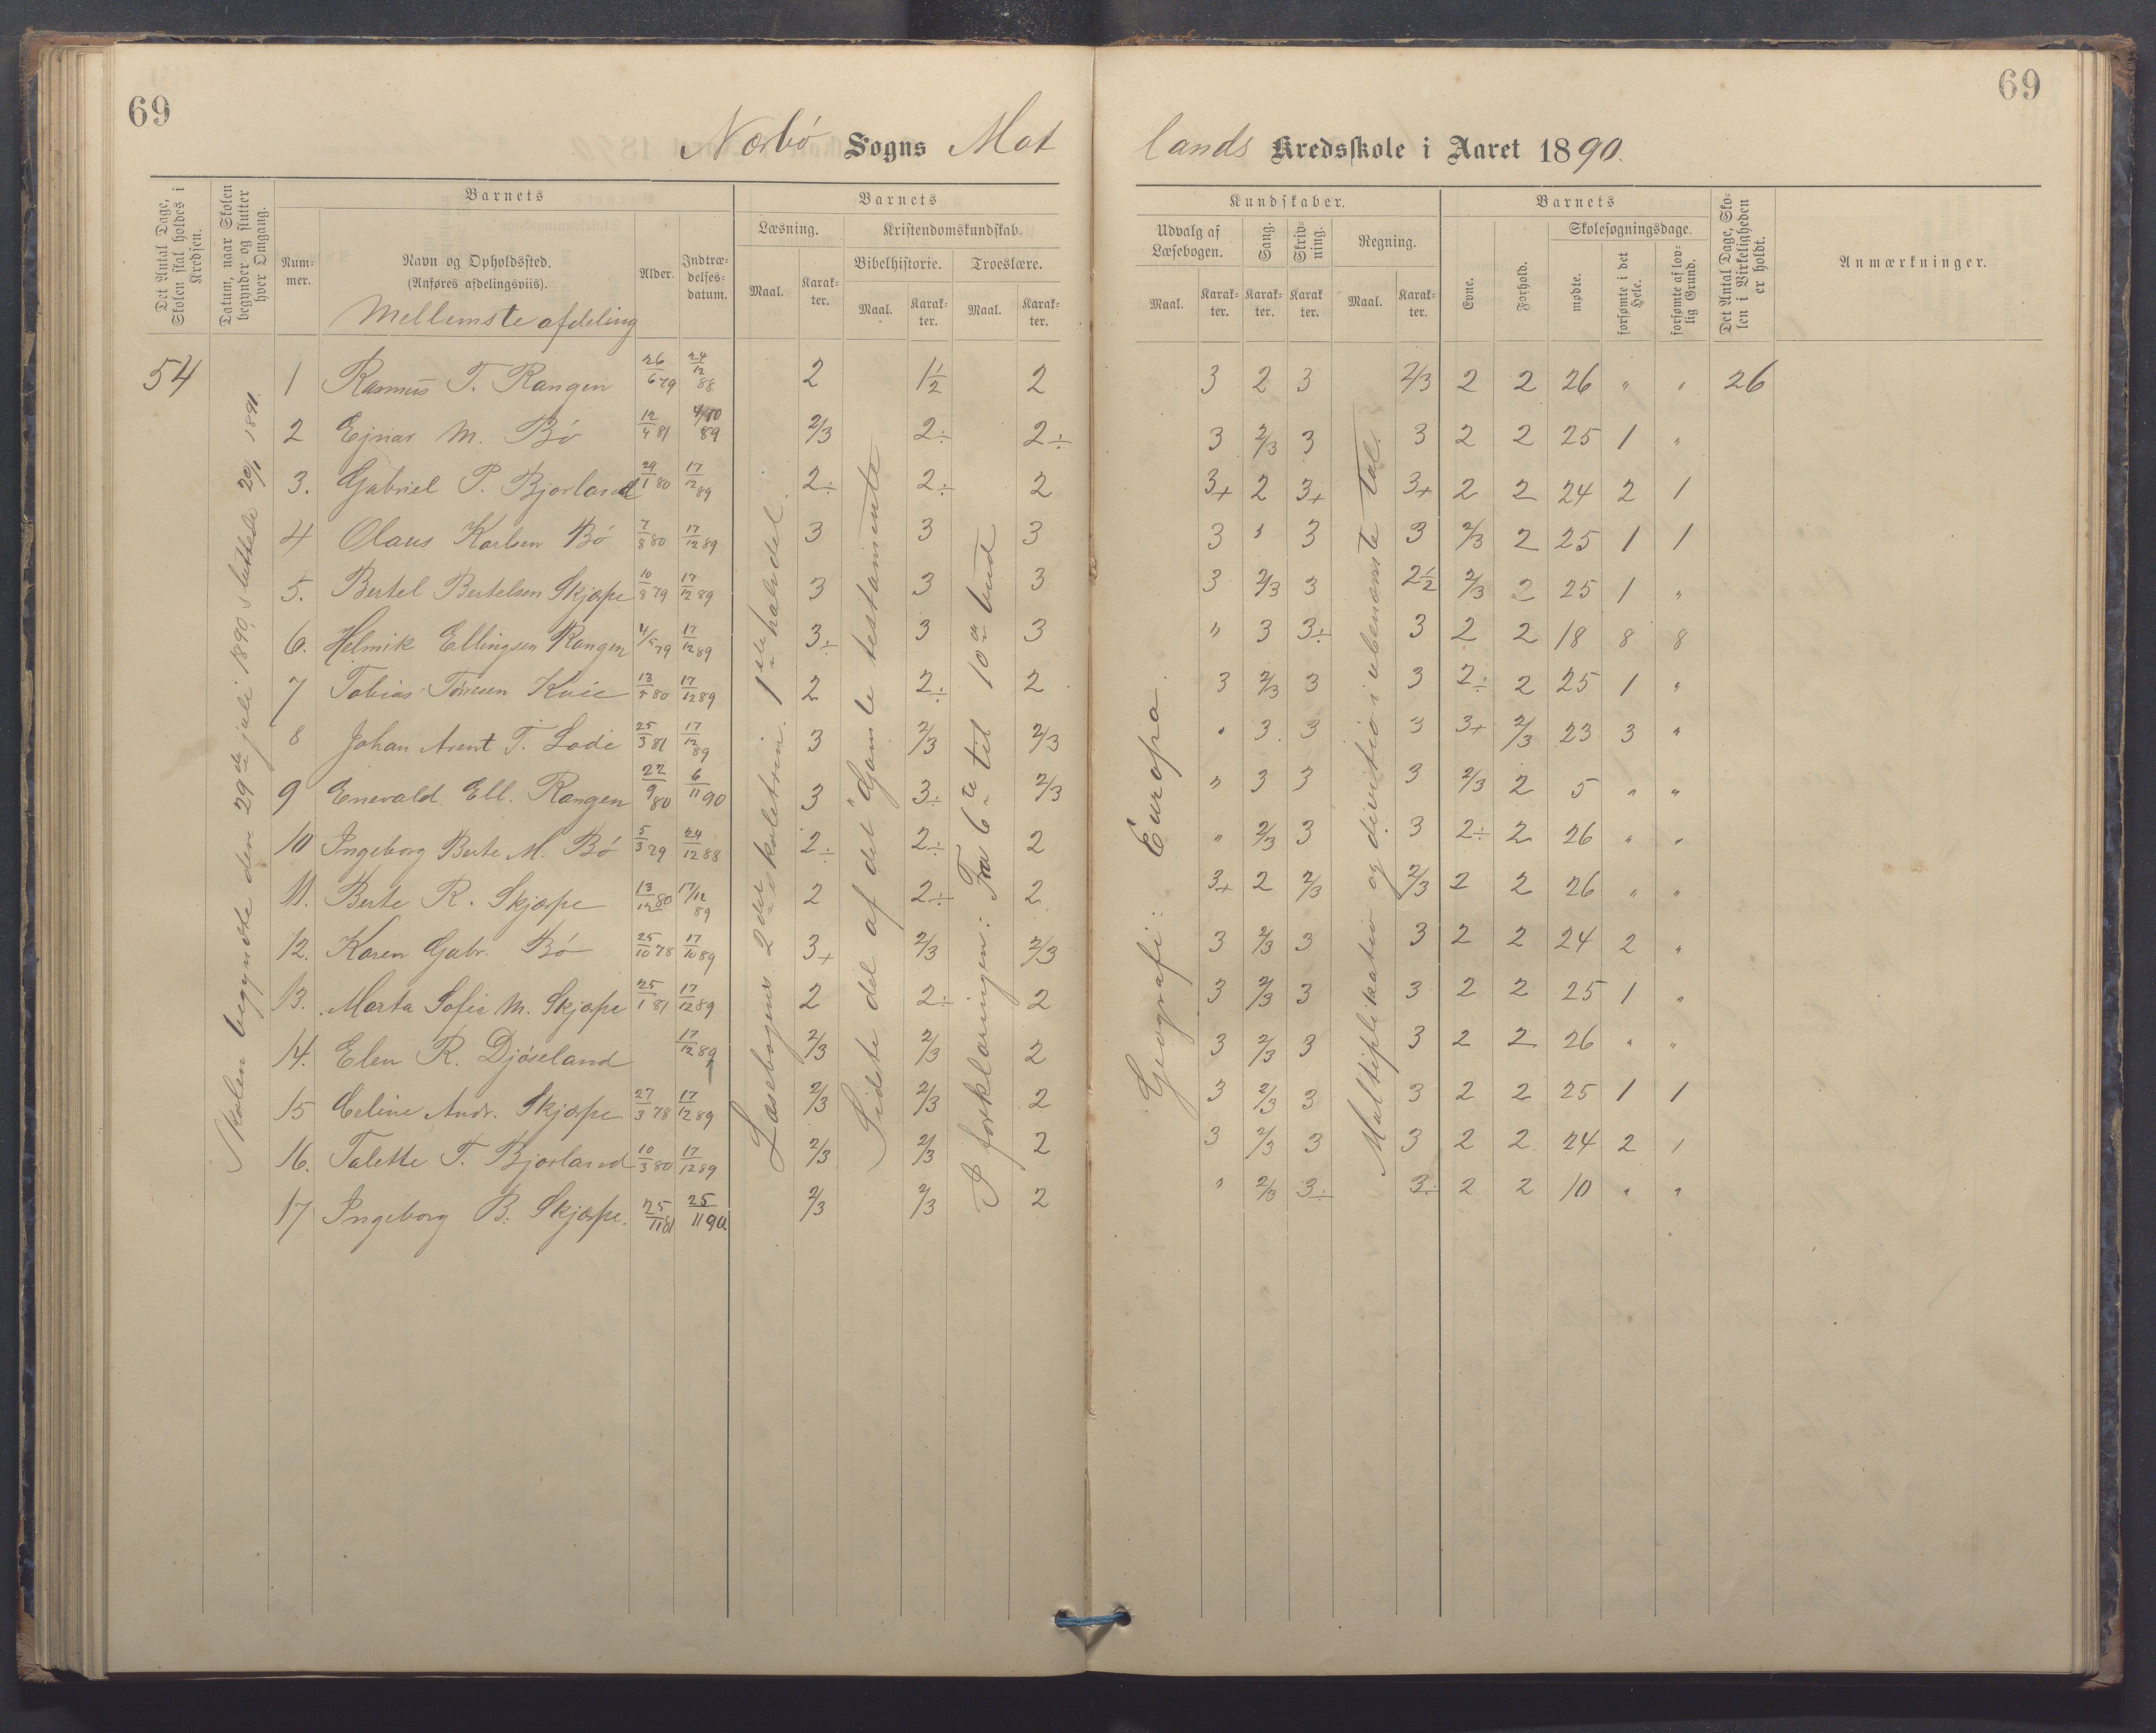 69
69
Nærbø Sogns Mot
lands Kredsskole i Aaret 1890.
Det Antal Dage, Skolen skal holdes i Kredsen.
Datum, naar Skolen begynder og slutter hver Omgang.
Barnets
Nummer.
Navn og Opholdssted.
(Anføres afdelingsviis).
Mellemste afdeling
Alder.
Indtrædelsesdatum.
Barnets
Læsning.
Maal.
Karakter.
Kristendomskundskab.
Bibelhistorie.
Maal.
Karakter.
Troeslære.
Maal.
Karakter.
Kundskaber.
Udvalg af Læsebogen.
Maal.
Karakter.
Sang.
Karakter.
Skrivning.
Karakter.
Regning.
Maal.
Karakter.
Barnets
Evne.
Forhold.
Skolesøgningsdage.
mødte.
forsømte i det Hele.
forsømte af lovlig Grund.
Det Antal Dage, Skolen i Virkeligheden er holdt.
Anmærkninger.
Skolen begyndte den 29de juli 1890, sluttede 20/1 1891.
Læsebogens 2det skoletrin. 1ste halvdel.
Sidste del af det "Gamle testamente
I forklaringen: Fra 6te til 10de bud
Geografi: Europa.
Multiplikation og division i ubenævnte tal.
54 1 Rasmus T. Rangen 26/6 79 24/12 88 2 1½ 2 3 2 3 2/3 2 2 26 " " 26
2 Ejnar M. Bø 12/4 81 4/10 89 2/3 2÷ 2÷ 3 2/3 3 3 2 2 25 1 "
3. Gabriel P. Bjorland 29/1 80 17/12 89 2÷ 2÷ 2 3+ 2 3+ 3+ 2 2 24 2 1
4 Olaus Karlsen Bø 7/8 80 17/12 89 3 3 3 3 3 3 3 2/3 2 25 1 1
5. Bertel Bertelsen Skjæpe 10/8 79 17/12 89 3 3 3 3 2/3 3 2½ 2/3 2 25 1 "
6. Helmik Ellingsen Rangen 4/5 79 17/12 89 3÷ 3 3 " 3 3÷ 3 2 2 18 8 8
7 Tobias Tørresen Kvie 13/5 80 17/12 89 2 2÷ 2 3 2/3 3 3 2÷ 2 25 1 "
8 Johan Arent T. Lode 25/3 81 17/12 89 3 2/3 2/3 " 3 3 3 3+ 2/3 23 3 "
9 Enevald Ell. Rangen 22/9 80 6/11 90 3 3÷ 2/3 " 3 3 3 2/3 2 5 " "
10 Ingeborg Berte M. Bø 5/3 79 24/12 88 2÷ 2÷ 2 " 2/3 3 3 2÷ 2 26 " "
11. Berte R. Skjæpe 13/12 80 17/12 89 2 2÷ 2 3+ 2 2/3 2/3 2 2 26 " "
12. Karen Gabr. Bø 25/10 78 17/10 89 3+ 2/3 2/3 3 2/3 3 3 2 2 24 2 "
13. Marta Sofie M. Skjæpe 25/1 81 17/12 89 2 2÷ 2 3 2/3 3 3 2 2 25 1 "
14. Elen R. Djøseland 17/12 89 2/3 2/3 2 3 2/3 3 3 2 2 26 " "
15 Celine Andr. Skjæpe 27/3 78 17/12 89 2/3 2/3 2 3 2/3 3 3 2 2 25 1 1
16. Talette T. Bjorland 10/3 80 17/12 89 2/3 2/3 2 3 2/3 3 3 2 2 24 2 1
17 Ingeborg B. Skjæpe. 25/11 81 25/11 90. 2/3 2/3 2 " 2/3 3÷ 3÷ 2 2 10 " "